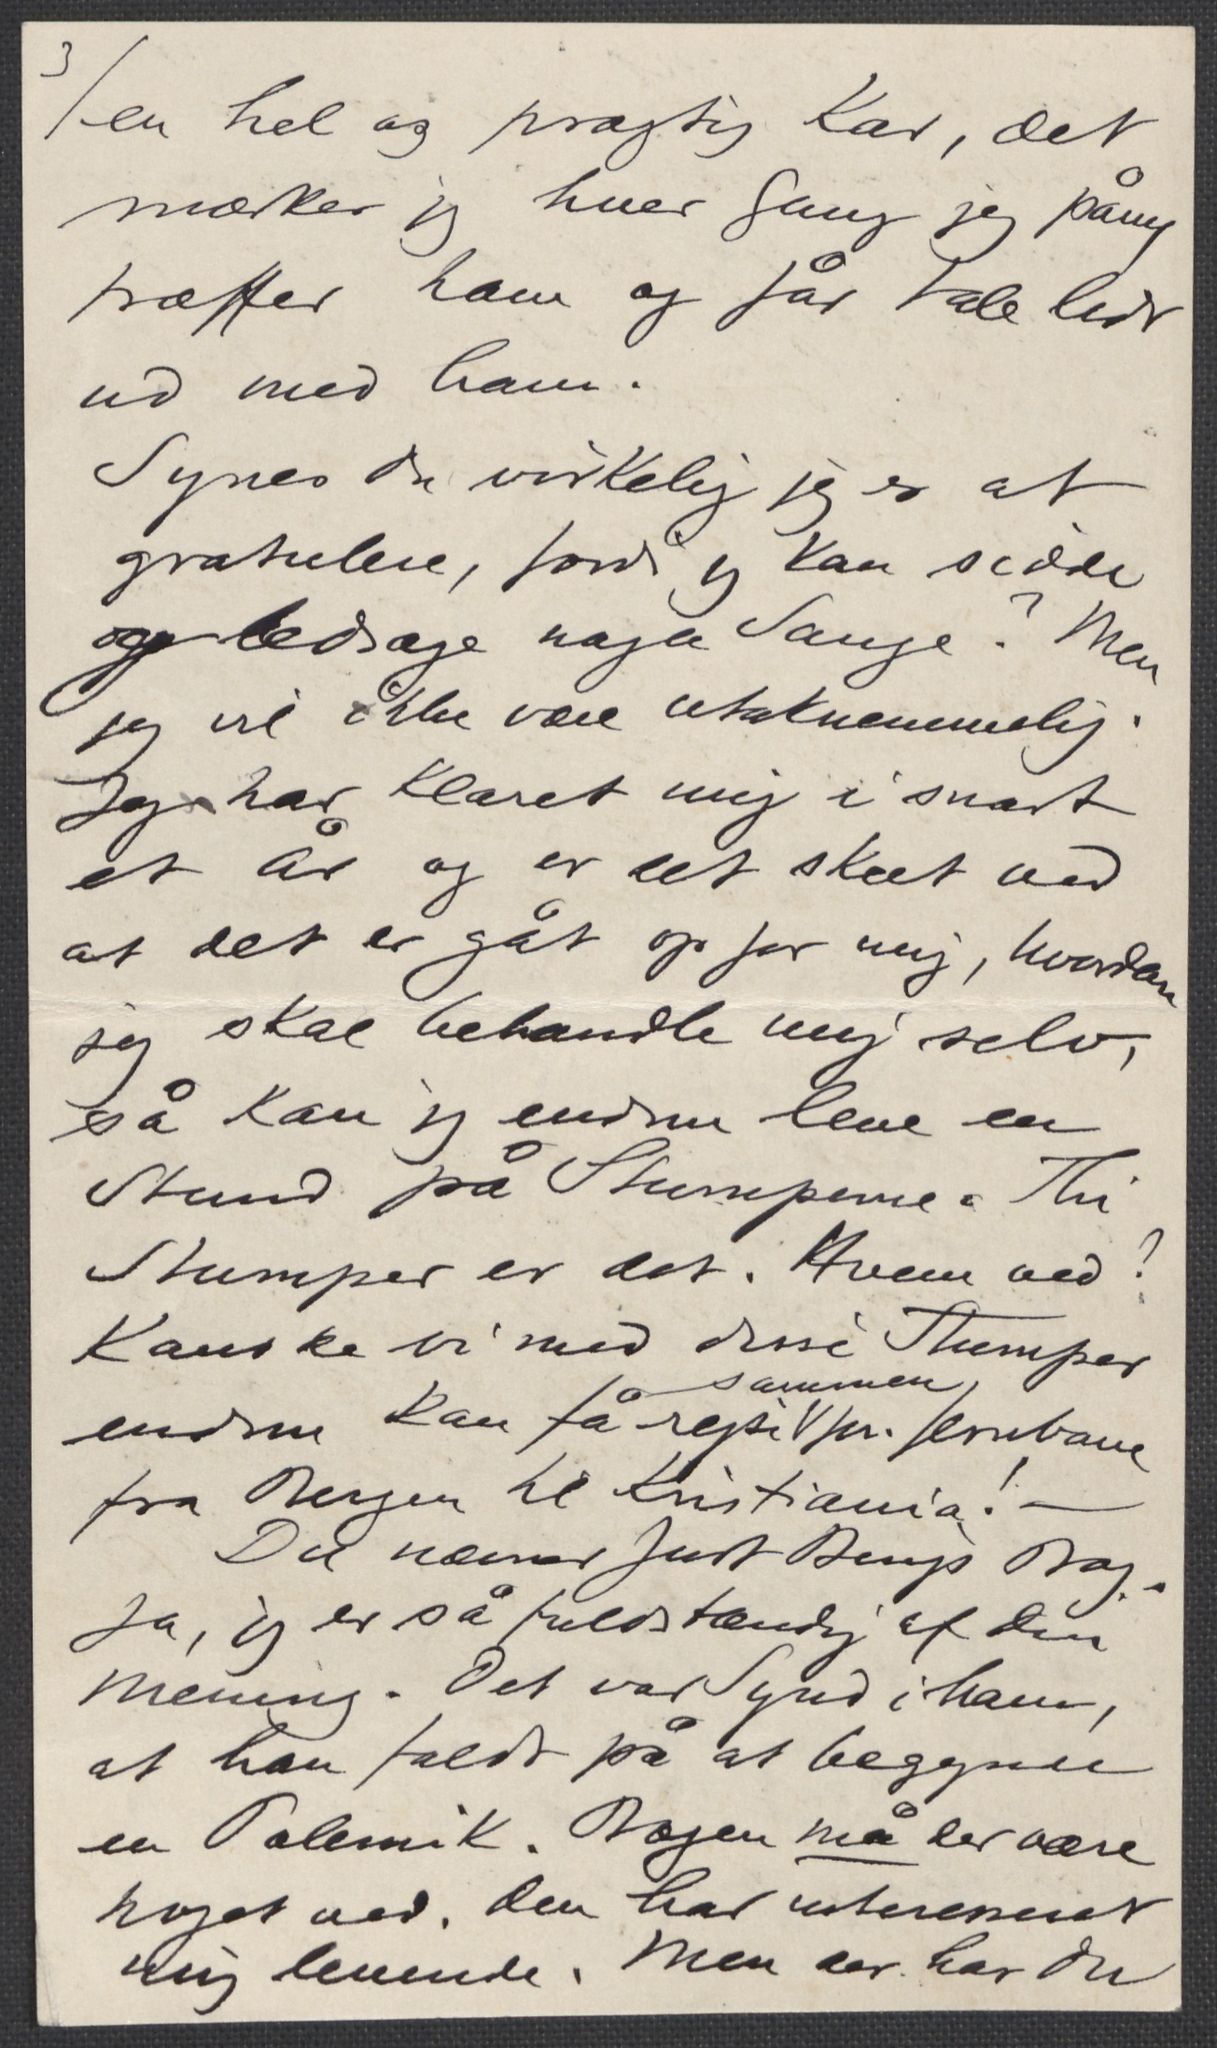 3/
en hel og prægtig Kar, det
mærker jeg hver Gang jeg påny
træffer ham og får tale lidt
ud med ham.
Synes du virkelig jeg er at
gratulere, fordi jeg kan sidde
og ledsage nogle Sange? Men
jeg vil ikke være utaknemmelig.
Jeg har klaret mig i snart
et År og er det skeet ved
at det er gåt op for mig, hvordan
jeg skal behandle mig selv,
så kan jeg endnu leve en
Stund på Stumperne. Thi
Stumper er det. Hvem ved?
Kanske vi med disse Stumper
endnu kan få rejse sammen pr. Jernbane
fra Bergen til Kristiania! —
Du nævner Just Bings Bog.
Ja, jeg er så fuldstændig af din
Mening. Det var Synd i ham,
at han faldt på at begynne
en Polemik. Bogen må der være
noget ved. Den har interesseret
mig levende. Men der har du